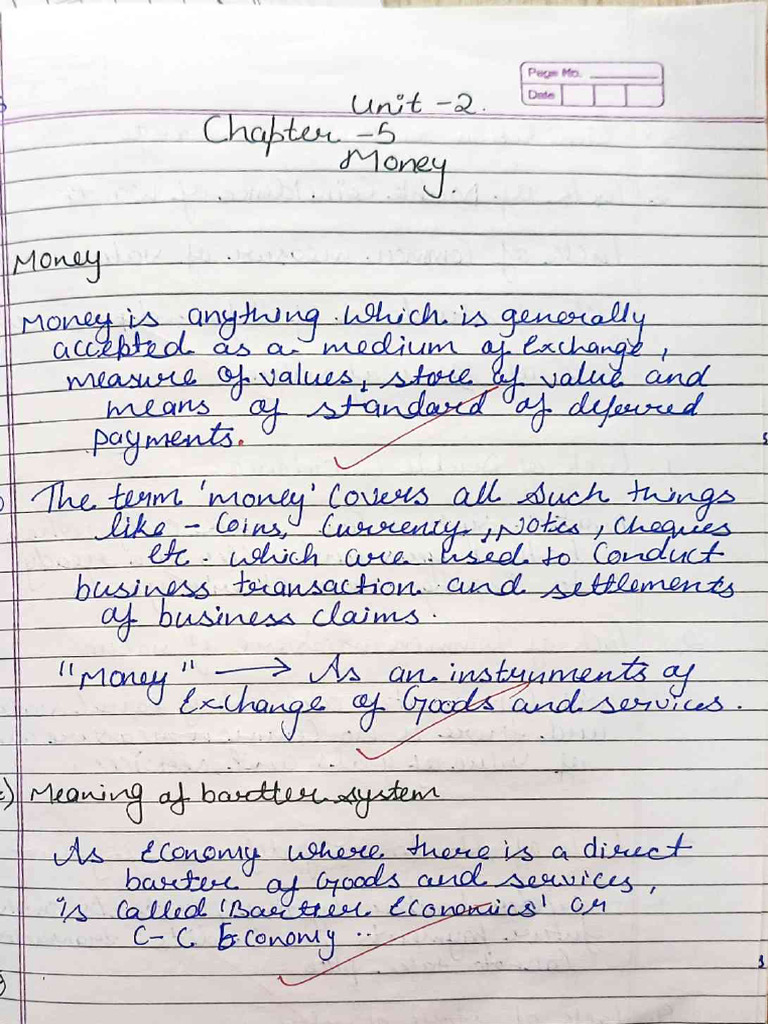 Page No.
Date
Unit -2.
Chapter -5
Money
Money
Money is anything which is generally
accepted as a medium of exchange,
measure of values, store of value and
means of standard of deferred
payments.
The term 'money' covers all such things
like - Coins, Currency, Notes, Cheques
etc. which are used to conduct
business transaction and settlements
of business claims.
"Money" → As an instruments of
Exchange of Goods and services.
Meaning of bartter system
As Economy where there is a direct
barter of Goods and services,
is called 'Bartter Economics' or
C-C Economy ..